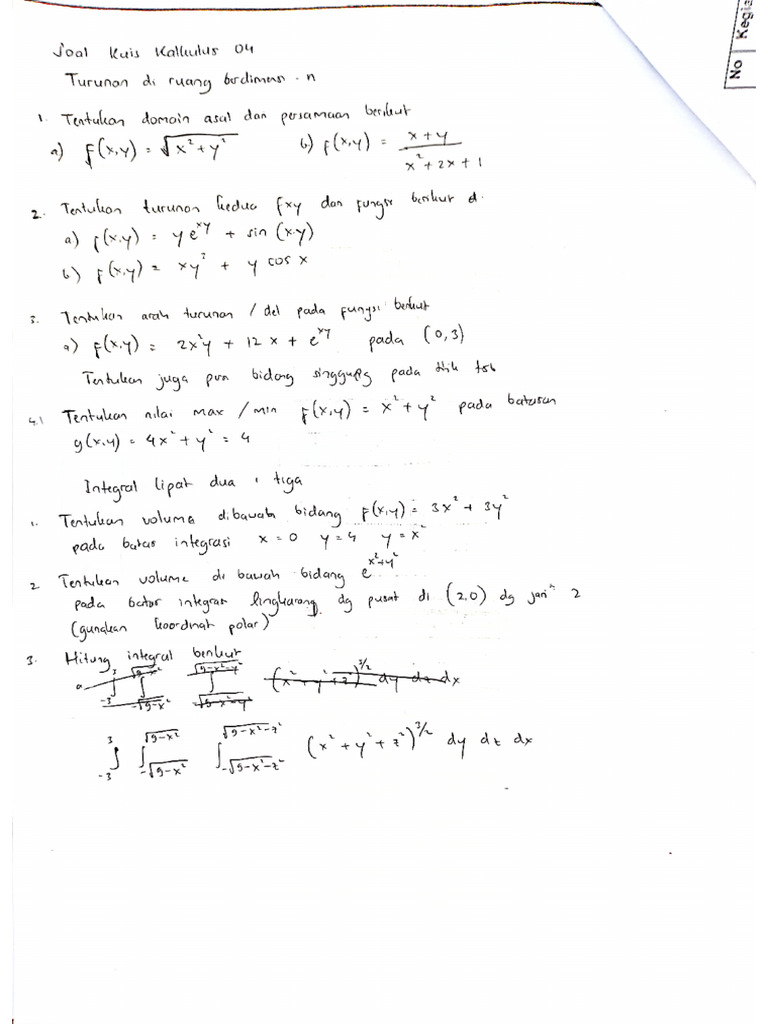 Soal Kuis Kalkulus 04
Turunan di ruang berdimensi - n
1. Tentukan domain asal dari persamaan berikut
a) f(x,y) = √(x² + y²) b) f(x,y) = (x + y) / (x² + 2x + 1)
2. Tentukan turunan kedua fxy dari fungsi berikut
a) f(x,y) = y e^(xy) + sin (x.y)
b) f(x,y) = xy² + y cos x
3. Tentukan arah turunan / del pada fungsi berikut
a) f(x,y) = 2x²y + 12x + e^(xy) pada (0,3)
Tentukan juga pers bidang singgung pada titik tsb
4. Tentukan nilai max / min f(x,y) = x² + y² pada batasan
g(x,y) = 4x² + y² = 4
Integral lipat dua, tiga
1. Tentukan volume dibawah bidang f(x,y) = 3x² + 3y²
pada batas integrasi x = 0 y = 4 y = x²
2 Tentukan volume di bawah bidang e^(x²+y²)
pada batas integrasi lingkaran dg pusat di (2,0) dg jari² 2
(gunakan koordinat polar)
3. Hitung integral berikut
∫_{-3}^{3} ∫_{-√(9-x²)}^{√(9-x²)} ∫_{-√(9-x²-y²)}^{√(9-x²-y²)} (x² + y² + z²)^(3/2) dy dz dx
∫_{-3}^{3} ∫_{-√(9-x²)}^{√(9-x²)} ∫_{-√(9-x²-z²)}^{√(9-x²-z²)} (x² + y² + z²)^(3/2) dy dz dx
No
Kegia